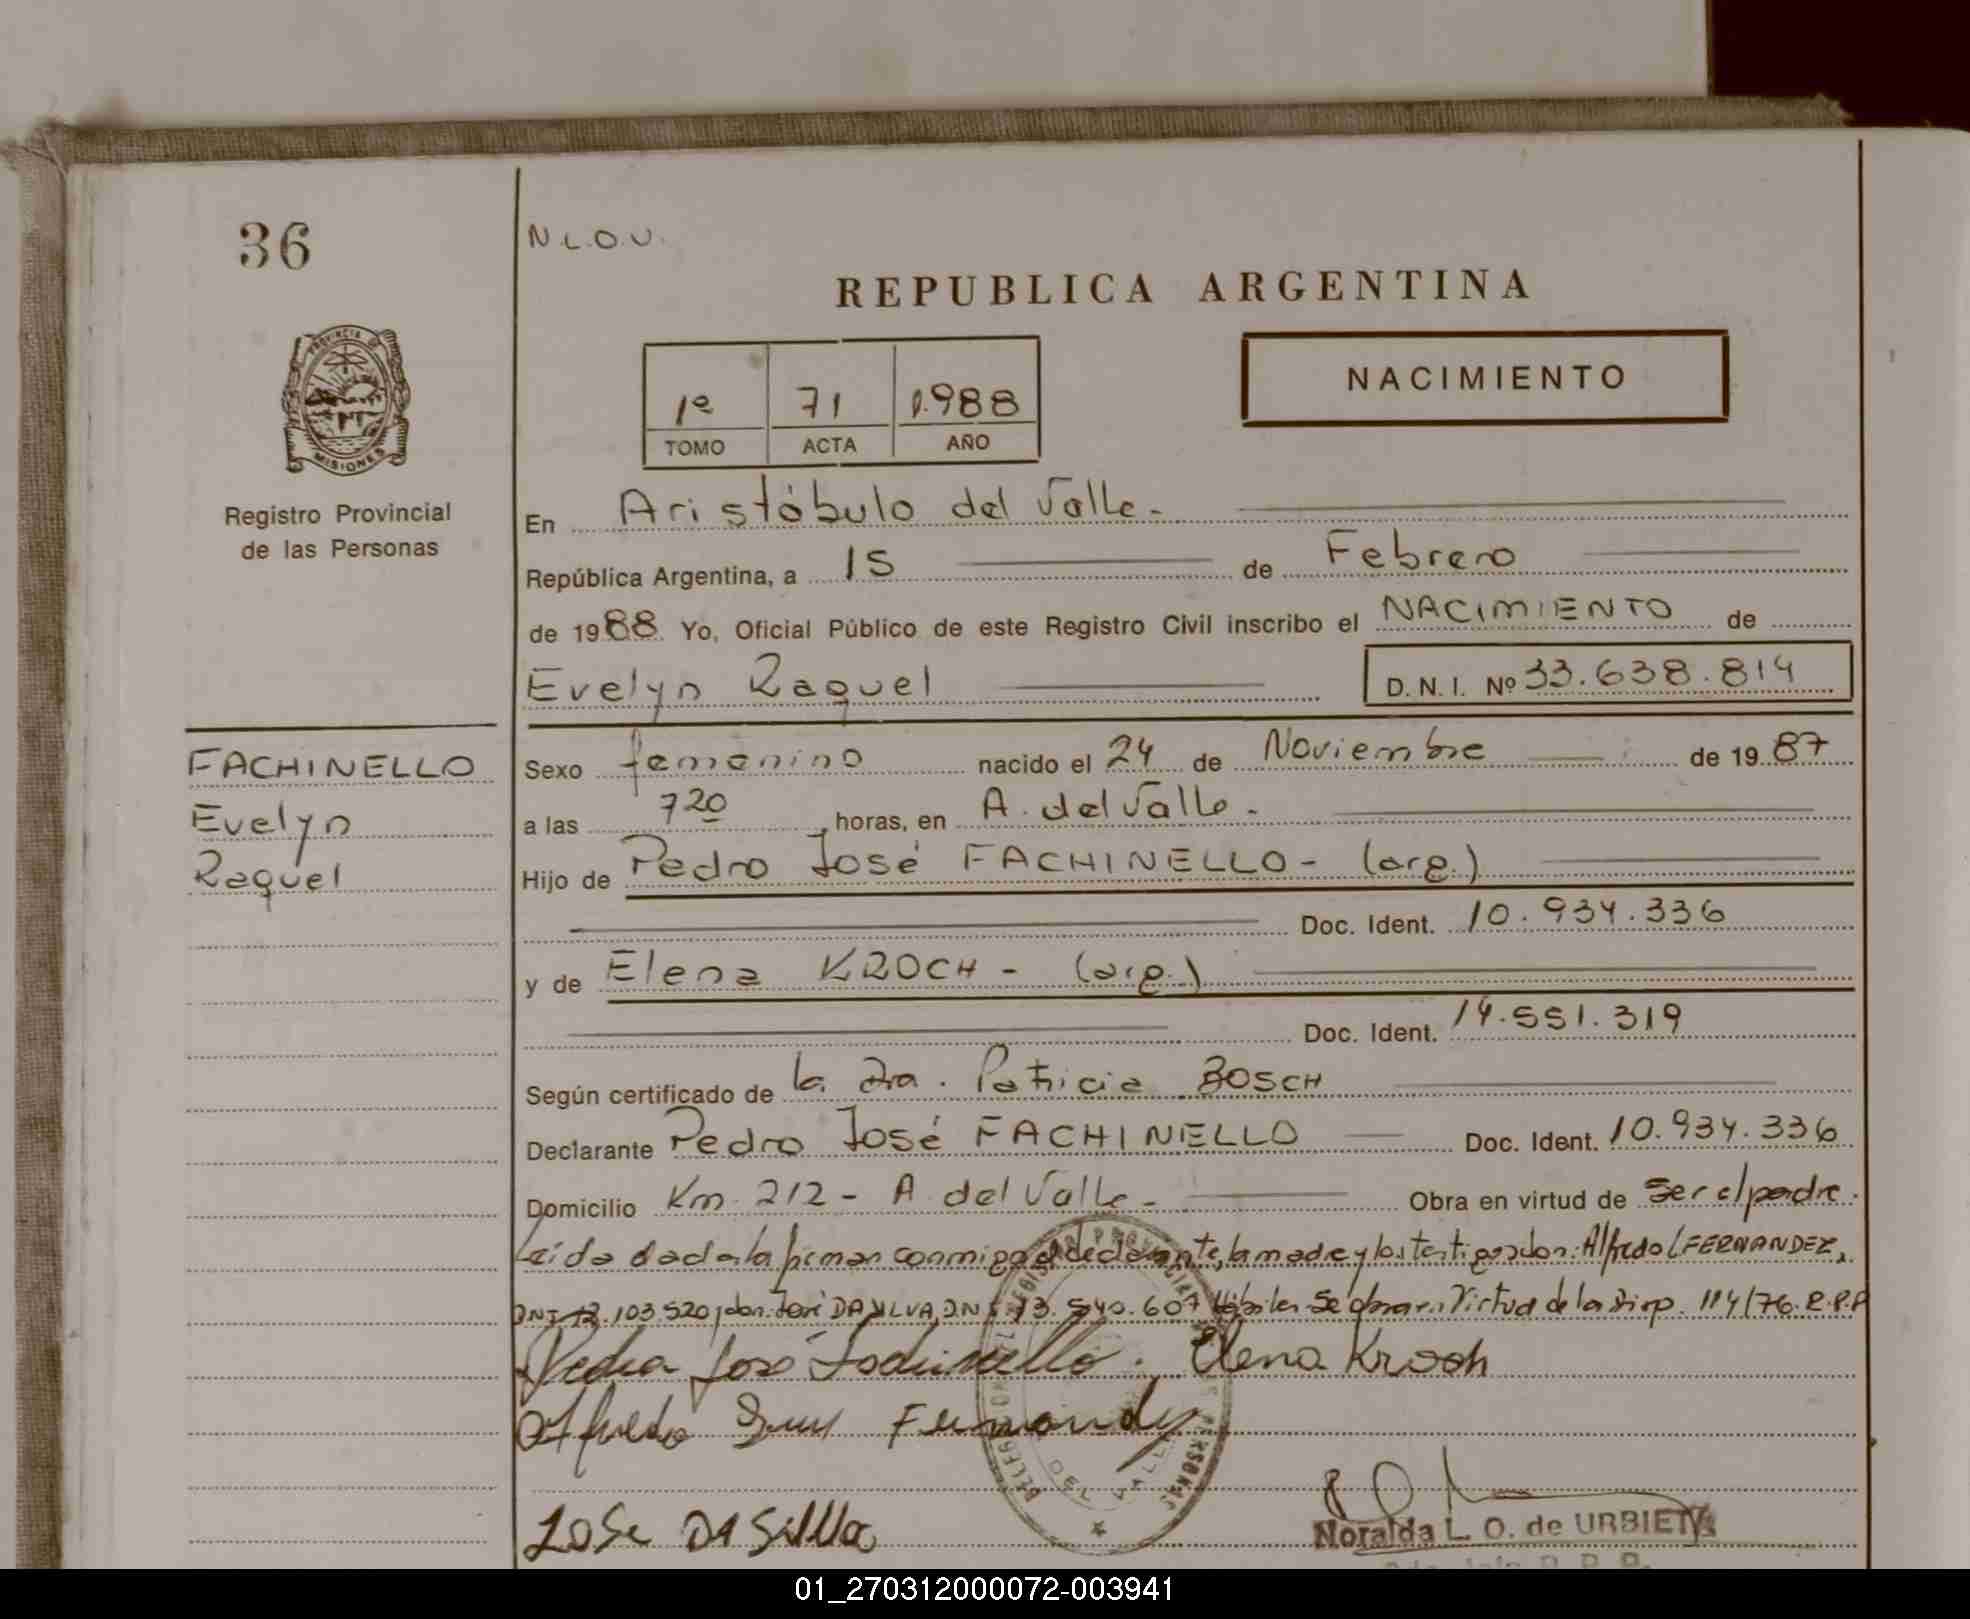 36
N.L.O.U.
REPUBLICA ARGENTINA
PROVINCIA DE
MISIONES
1º 71 1.988
TOMO ACTA AÑO
NACIMIENTO
Registro Provincial
de las Personas
En Aristóbulo del Valle.-
República Argentina, a 15 de Febrero
de 1988. Yo, Oficial Público de este Registro Civil inscribo el NACIMIENTO de
Evelyn Raquel D. N. I. Nº 33.638.814
FACHINELLO
Evelyn
Raquel
Sexo femenino nacido el 24 de Noviembre de 19 87
a las 7 20 horas, en A. del Valle.
Hijo de Pedro José FACHINELLO- (arg.)
Doc. Ident. 10.934.336
y de Elena KROCH - (arg.)
Doc. Ident. 14.551.319
Según certificado de la Dra. Patricia BOSCH
Declarante Pedro José FACHINELLO Doc. Ident. 10.934.336
Domicilio Km. 212 - A. del Valle - Obra en virtud de ser el padre.
Leída el acta la firman conmigo el declarante, la madre y los testigos don: Alfredo L FERNANDEZ,
DNI 12.103.520 y don: José DA SILVA, D.N.I 13.540.607 Hábiles Se obra en Virtud de la Disp. 114/76.R.P.P
Pedro José Fachinello. Elena Kroch
Alfredo Fernandez
DEL VALLE
JoSe DA SilVa
Noralda L. O. de URBIETA
01_270312000072-003941